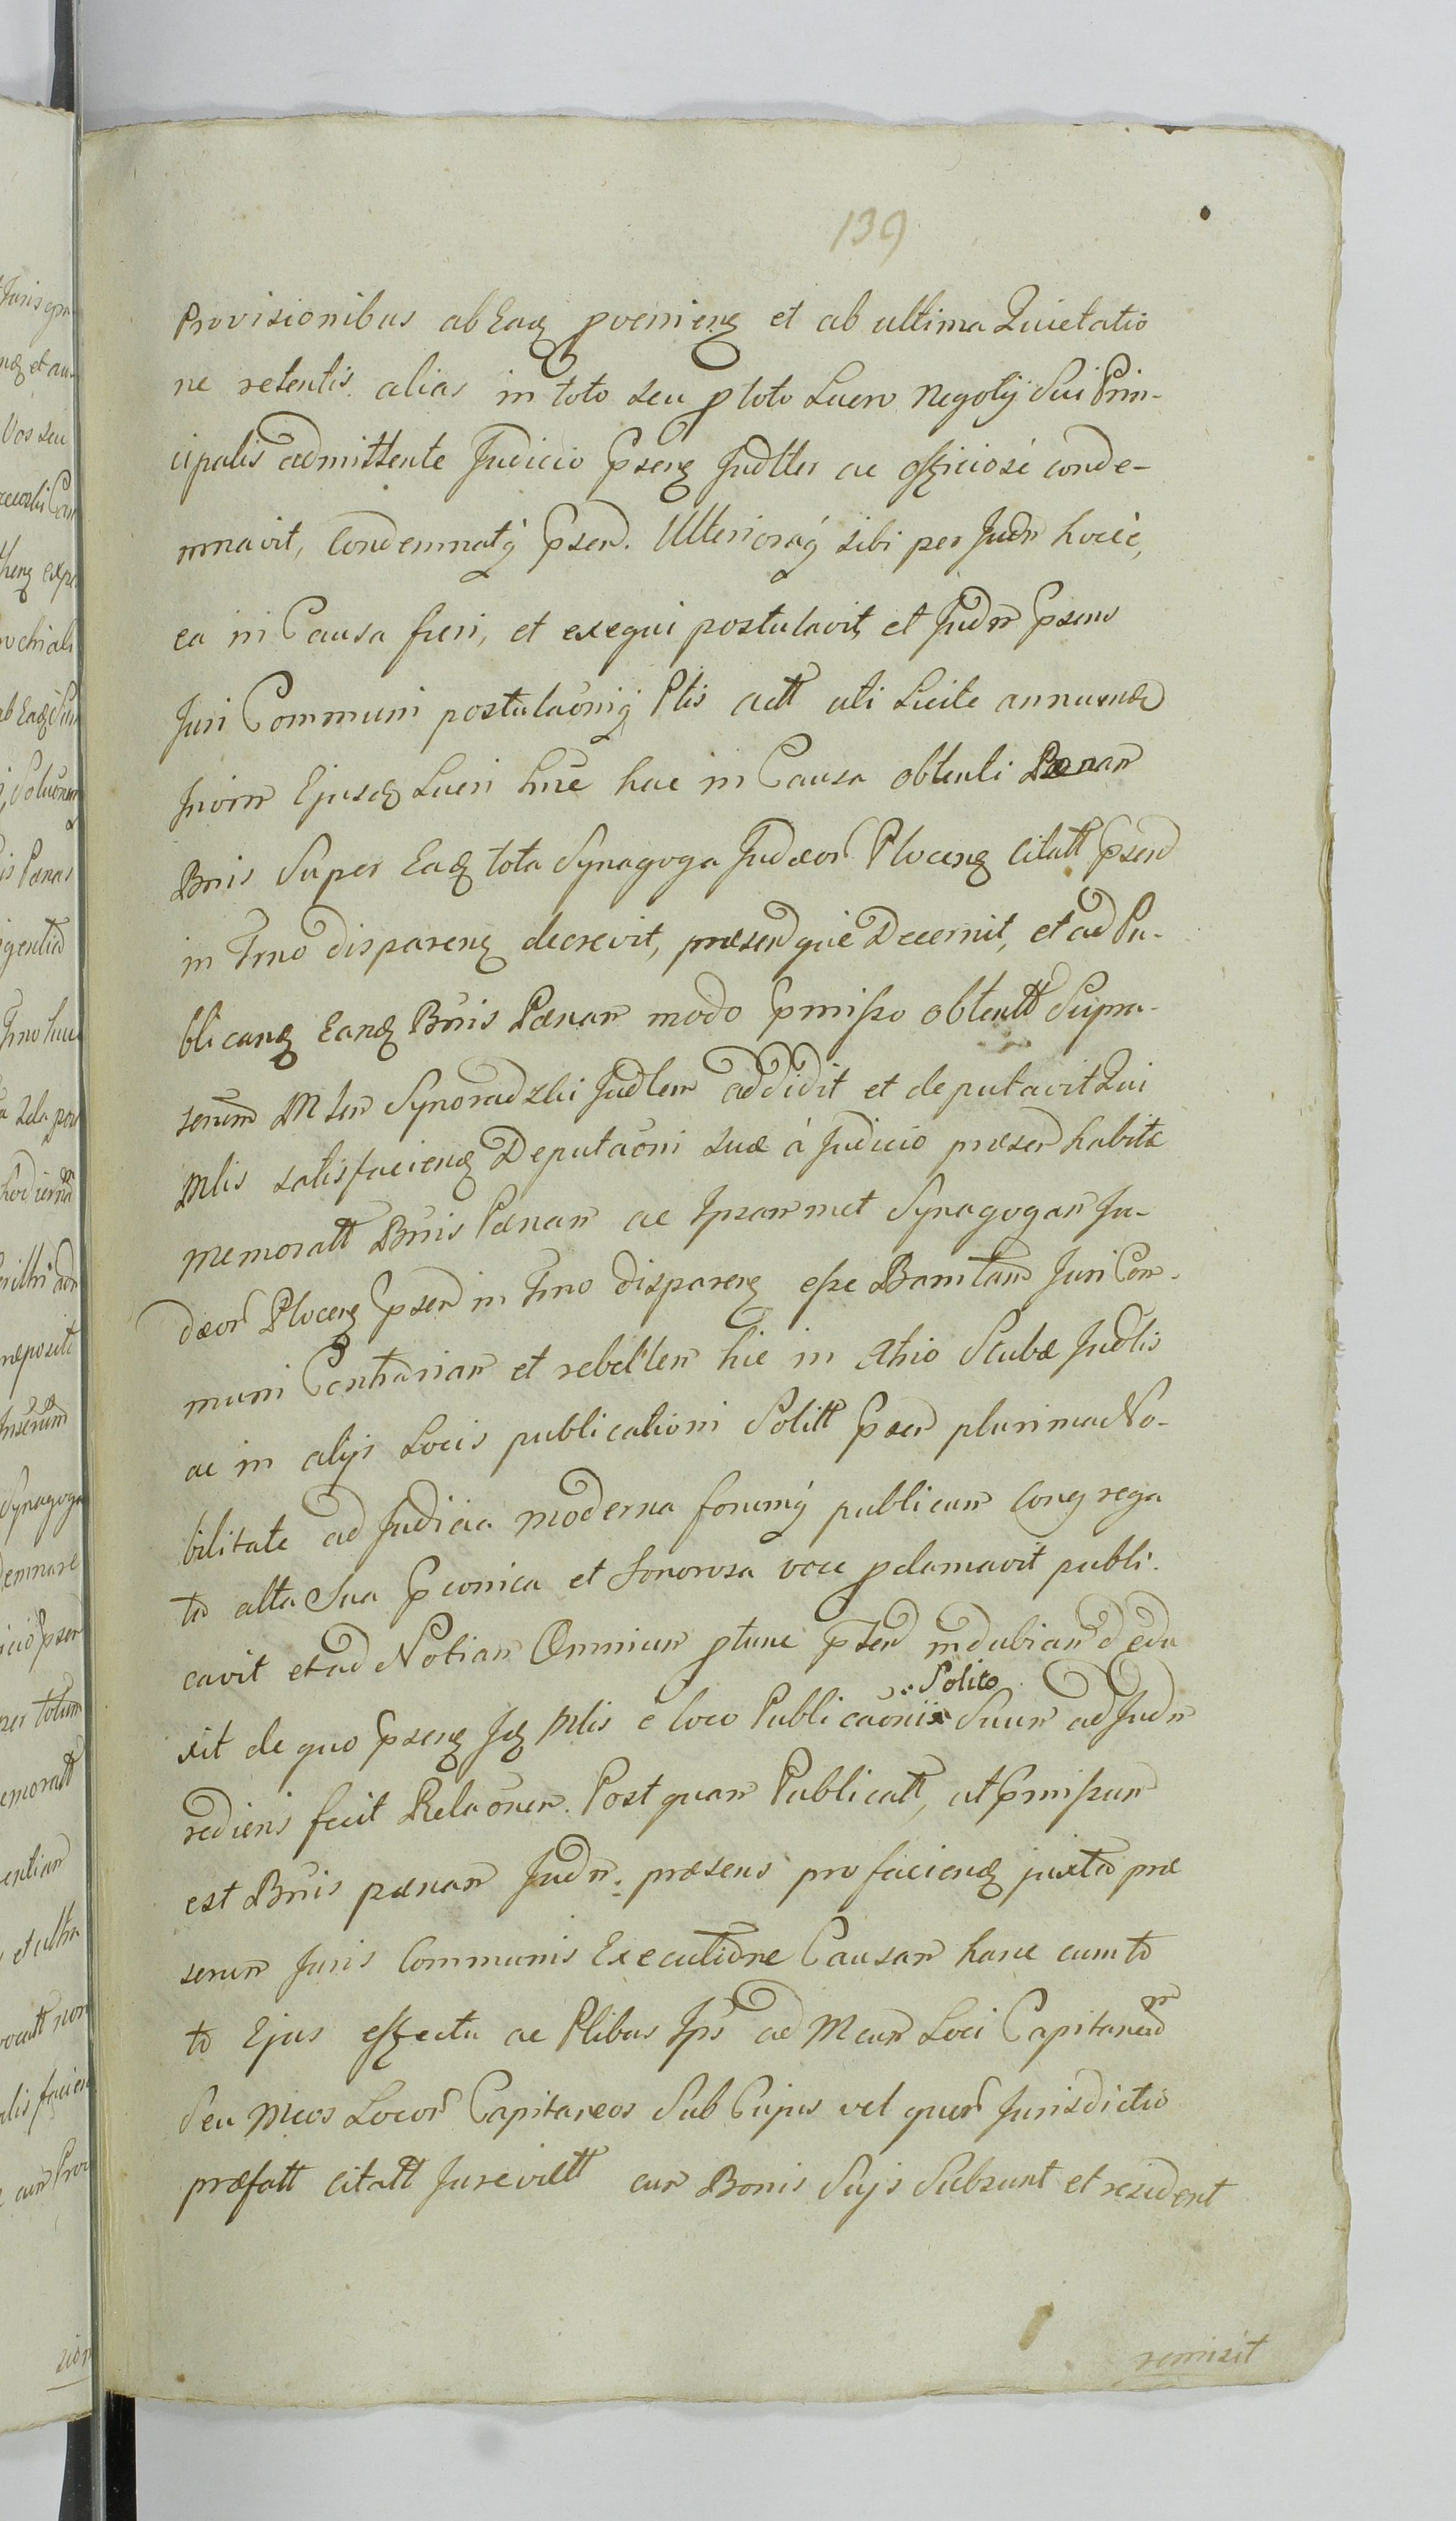 139
Provisionibus ab Eaq proenienq et ab ultima Quietatio
ne retentis. alias in toto seu p toto Lucro Negotÿ Sui Prin-
cipalis admittente Judicio Psenq Judtter ac officiosé conde-
mnavit, Condemnatq Psen. Ulterioraq sibi per Judm hocce,
ea in Causa fieri, et exequi postulavit, et Judm Psens
Juri Communi postulaoniq Ptis actt uti Licite annuend
In vim Ejusdq Lucri hace in Causa obtenti Pænam
Bnis Super Eaq tota Synagoga Judæor Plocenq Citatt Psen
in Trno disparenq decrevit, præsenq uè Decernit, et ad Pu-
blicanq Eanq Bnis Pænam modo Pmisso obtentt Supra-
serum Mlem Synoradzki Judlem addidit et deputavit Qui
Mlis satisfacienq Deputaoni suæ à Judicio præsen habitæ
memoratt Bnis Pænam ac Ipsammet Synagogam Ju-
dæor Plocenq Psen in Trno disparenq esse Bannitam Juri Com-
muni Contrariam et rebellem hic in Atrio Stubæ Judlis
ac in alÿs Locis publicationi Solitt Psen plurima No-
bilitate ad Judicia moderna forumq publicum Congrega
ta alta Sua Pconica et Sonorosa voce pclamavit publi-
cavit et ad Notiam Omnium ptunc Psen indubiam dedu
Solito
xit de quo Psenq Jq Mlis è loco Publicaonis Suum ad Judm
rediens fecit Relaonem. Postquam Publicatt, ut Pmissum
est Bnis pænam Judm præsens pro faciend juxta præ
serum Juris Communis Executione Causam hanc cum to
to Ejus effectu ac Ptibus Ips ad Mcum Loci Capitaneum
Seu Mcos Locor Capitaneos Sub Cujus vel quor Jurisdictio
præfatt Citatt Jurevictt cum Bonis Suÿs Subsunt et resident
remisit